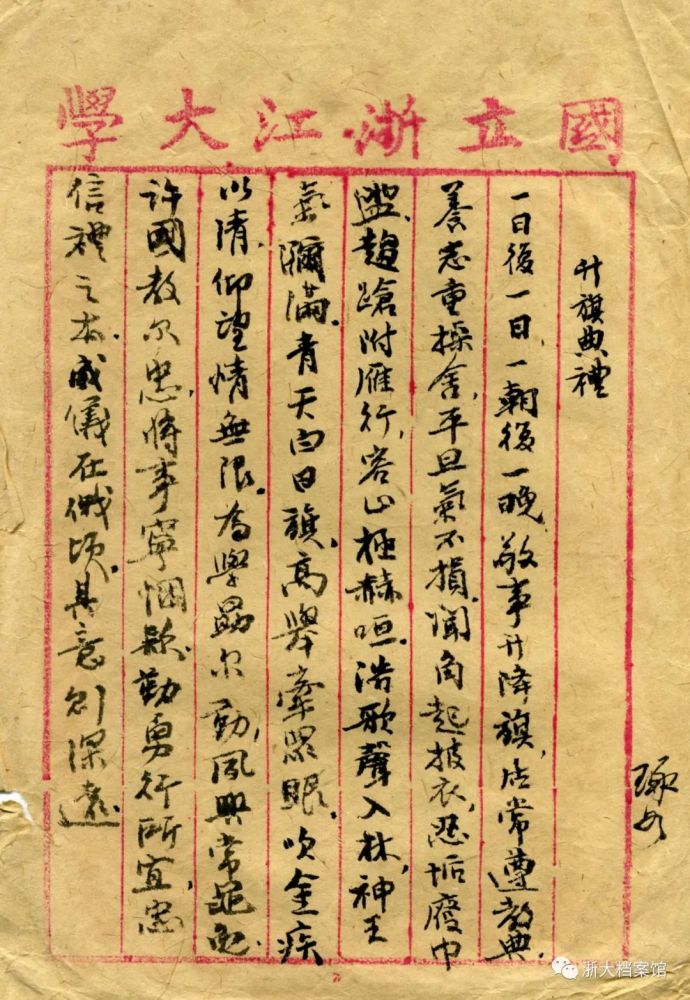 國立浙江大學
琢如
升旗典禮
一日後一日,一朝後一晚,敬事升降旗,居常遵教典.
養志重操舍,平旦氣不損,聞角起披衣,忍垢廢巾
盥,趨蹌附雁行,容止極赫咺,浩歌聲入林,神王
氣彌滿.青天白日旗,高舉牽眾眼.吹金疾
以清,仰望情無限.為學勗尔勤,夙興常黽勉.
許國教尔忠,將事寧悃款.勤勇行所宜,忠
信禮之本.威儀在俄頃,其意則深遠.
浙大档案馆